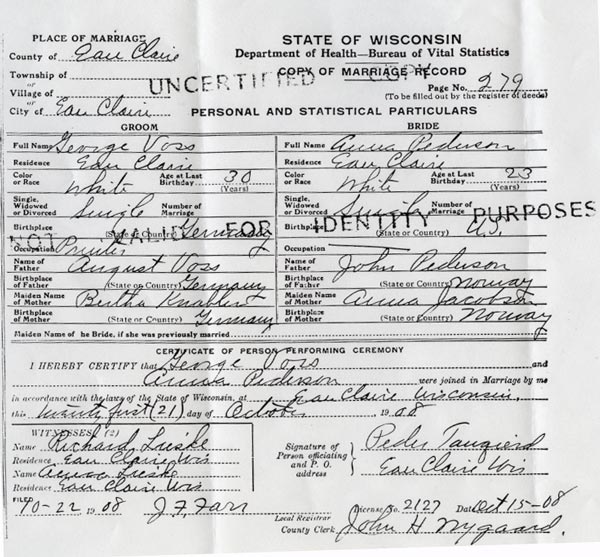 PLACE OF MARRIAGE
STATE OF WISCONSIN
County of Eau Claire
Department of Health—Bureau of Vital Statistics
Township of
COPY OF MARRIAGE RECORD
UNCERTIFIED COPY
or
Village of
Page No. 279
or
(To be filled out by the register of deeds)
City of Eau Claire
PERSONAL AND STATISTICAL PARTICULARS
GROOM BRIDE
Full Name George Voss Full Name Anna Pederson
Residence Eau Claire Residence Eau Claire
Color or Race White Age at Last Birthday 30 (Years) Color or Race White Age at Last Birthday 23 (Years)
Single, Widowed or Divorced Single Number of Marriage Single, Widowed or Divorced Single Number of Marriage
Birthplace (State or Country) Germany Birthplace (State or Country) U.S.
NOT VALID FOR IDENTITY PURPOSES
Occupation Printer Occupation
Name of Father August Voss Name of Father John Pederson
Birthplace of Father (State or Country) Germany Birthplace of Father (State or Country) Norway
Maiden Name of Mother Bertha Maiden Name of Mother Anna Jacobson
Birthplace of Mother (State or Country) Germany Birthplace of Mother (State or Country) Norway
Maiden Name of he Bride, if she was previously married
CERTIFICATE OF PERSON PERFORMING CEREMONY
I HEREBY CERTIFY that George Voss and
Anna Pederson were joined in Marriage by me
in accordance with the laws of the State of Wisconsin, at Eau Claire Wisconsin,
this twenty first (21) day of October 1908
WITNESSES (2)
Name Richard Lueske
Signature of Person officiating and P. O. address Peder Eau Claire Wis
Residence Eau Claire Wis
Name Anna Lueske
Residence Eau Claire Wis
FILED
10-22 1908 J. F. Farr
Local Registrar
License No. 2127 Date Oct 15-08
County Clerk John H Nygaard.